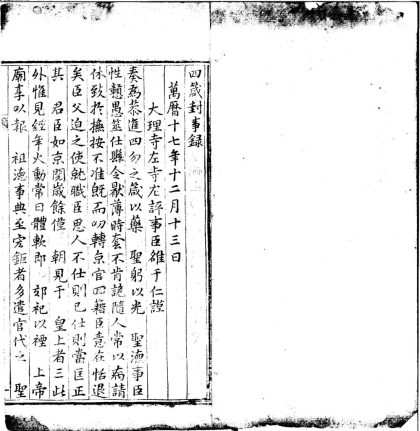 四箴封事録
萬曆十七年十二月十三日
大理寺左寺左評事臣雒于仁謹
奏為恭進四勿之箴以藥 聖躬以光 聖德事臣
性戇愚筮仕縣令薄時套不肯詭隨人常以病請
休致於撫按不准既而叨轉京官回籍臣意在恬退
矣臣父迫之使就職臣思人不仕則已仕則當匡正
其 君臣如京閱歲餘僅 朝見于 皇上者三此
外惟見經年火動常曰體軟即 郊祀以禋 上帝
廟享以報 祖德事典至宏鉅者多遣官代之 聖